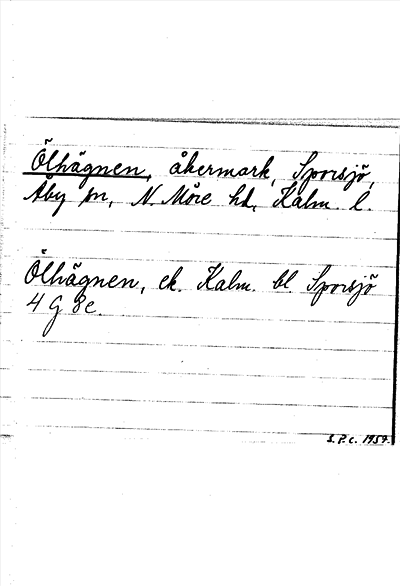 Ölhägnen, åkermark, Sporsjö,
Åby sn, N. Möre hd, Kalm. l.
Ölhägnen, ek. Kalm. bl. Sporsjö
4 G 8 c.
S.P.C. 1959.